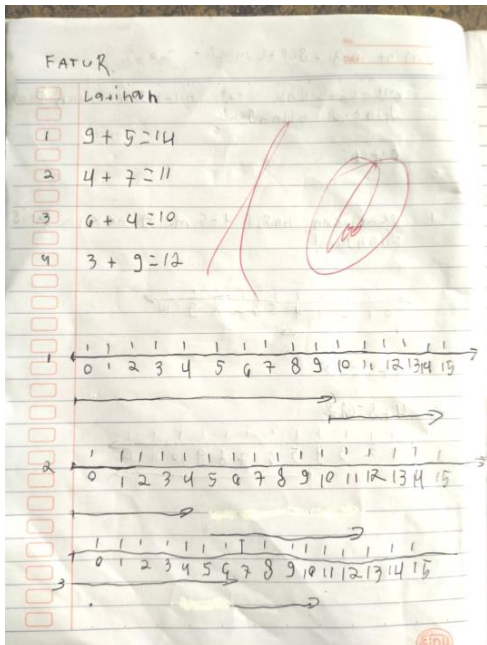 FATUR
Latihan
1 9 + 5 = 14
2 4 + 7 = 11
3 6 + 4 = 10
4 3 + 9 = 12
100
1 0 1 2 3 4 5 6 7 8 9 10 11 12 13 14 15
2 0 1 2 3 4 5 6 7 8 9 10 11 12 13 14 15
3 0 1 2 3 4 5 6 7 8 9 10 11 12 13 14 15